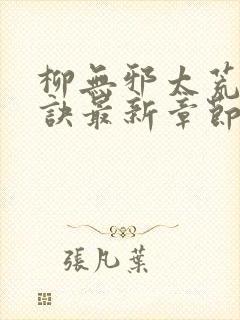 柳無邪太荒
訣最新章節
張凡葉